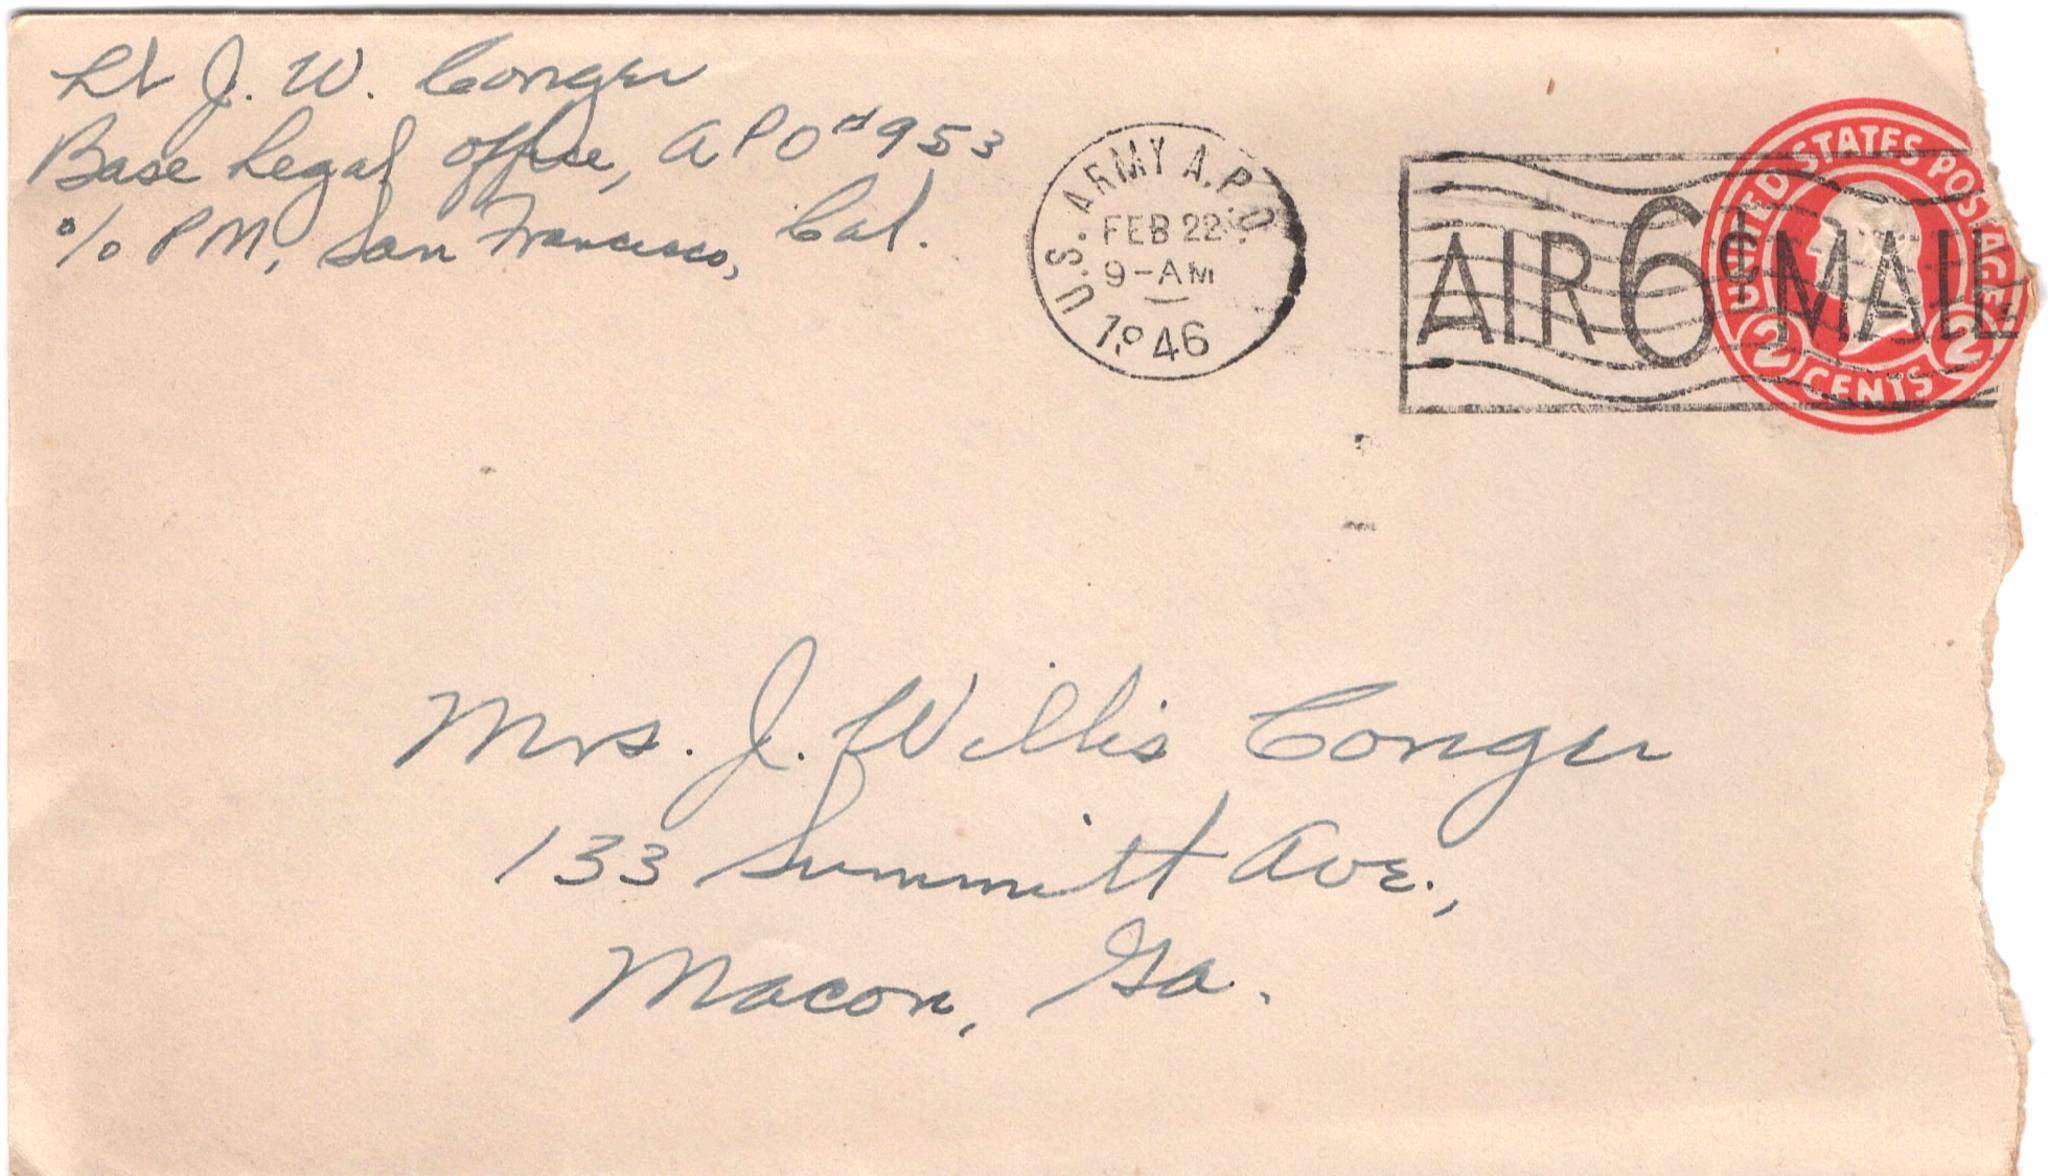 Lt J. W. Conger
Base Legal Office, APO #953
c/o PM, San Francisco, Cal.
U.S. ARMY A.P.O.
FEB 22
9-AM
1946
AIR 6¢ MAIL
UNITED STATES POSTAGE
2 CENTS 2
Mrs. J. Willis Conger
133 Summitt Ave.,
Macon, Ga.